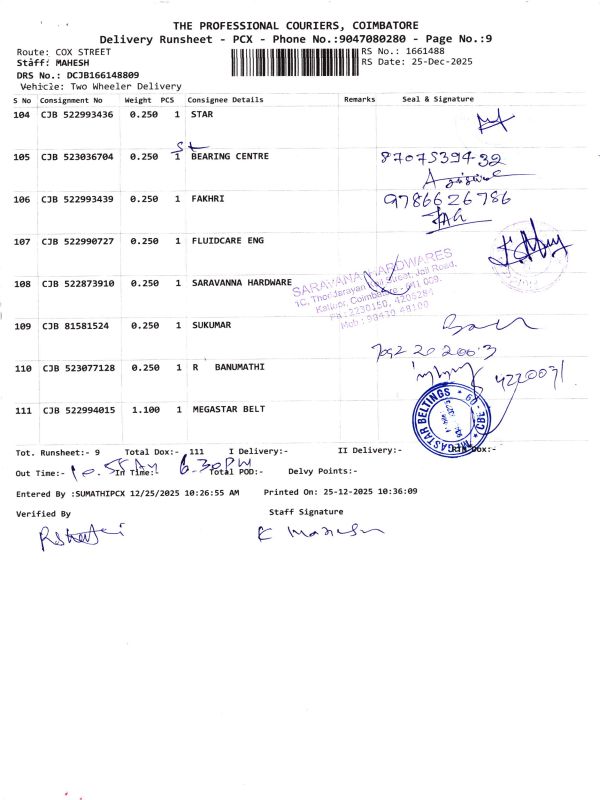 THE PROFESSIONAL COURIERS, COIMBATORE
Delivery Runsheet - PCX - Phone No.:9047080280 - Page No.:9
Route: COX STREET RS No.: 1661488
Staff: MAHESH RS Date: 25-Dec-2025
DRS No.: DCJB166148809
Vehicle: Two Wheeler Delivery
S No Consignment No Weight PCS Consignee Details Remarks Seal & Signature
104 CJB 522993436 0.250 1 STAR
105 CJB 523036704 0.250 1 BEARING CENTRE 8707539432
106 CJB 522993439 0.250 1 FAKHRI 9786626786
107 CJB 522990727 0.250 1 FLUIDCARE ENG
SARAVANA HARDWARES
108 CJB 522873910 0.250 1 SARAVANNA HARDWARE
109 CJB 81581524 0.250 1 SUKUMAR
110 CJB 523077128 0.250 1 R BANUMATHI
111 CJB 522994015 1.100 1 MEGASTAR BELT
MEGASTAR BELTINGS * CBE - 09 *
Tot. Runsheet:- 9 Total Dox:- 111 I Delivery:- II Delivery:-
Out Time:- 10.55AM In Time:- 6.30PM Total POD:- Delvy Points:-
Entered By :SUMATHIPCX 12/25/2025 10:26:55 AM Printed On: 25-12-2025 10:36:09
Verified By Staff Signature
K Mahesh